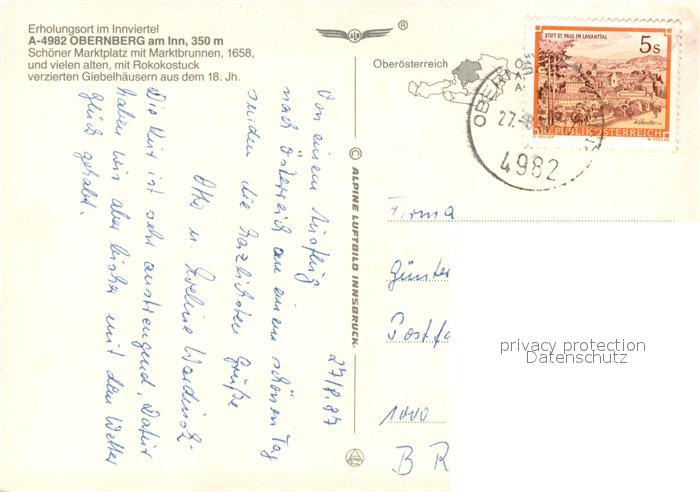 Erholungsort im Innviertel
A-4982 OBERNBERG am Inn, 350 m
Schöner Marktplatz mit Marktbrunnen, 1658,
und vielen alten, mit Rokokostuck
verzierten Giebelhäusern aus dem 18. Jh.
®
Oberösterreich
STIFT ST. PAUL IM LAVANTTAL
5s
REPUBLIK ÖSTERREICH
4982
© ALPINE LUFTBILD INNSBRUCK
27/8.87
Von einem Ausflug
nach Österreich an einem schönen Tag
senden die herzlichsten Grüße
Otto u.
Die Kur ist sehr anstrengend, dafür
haben wir aber bisher mit dem Wetter
glück gehabt.
Firma
Günter
Postfa
1000
B R
privacy protection
Datenschutz